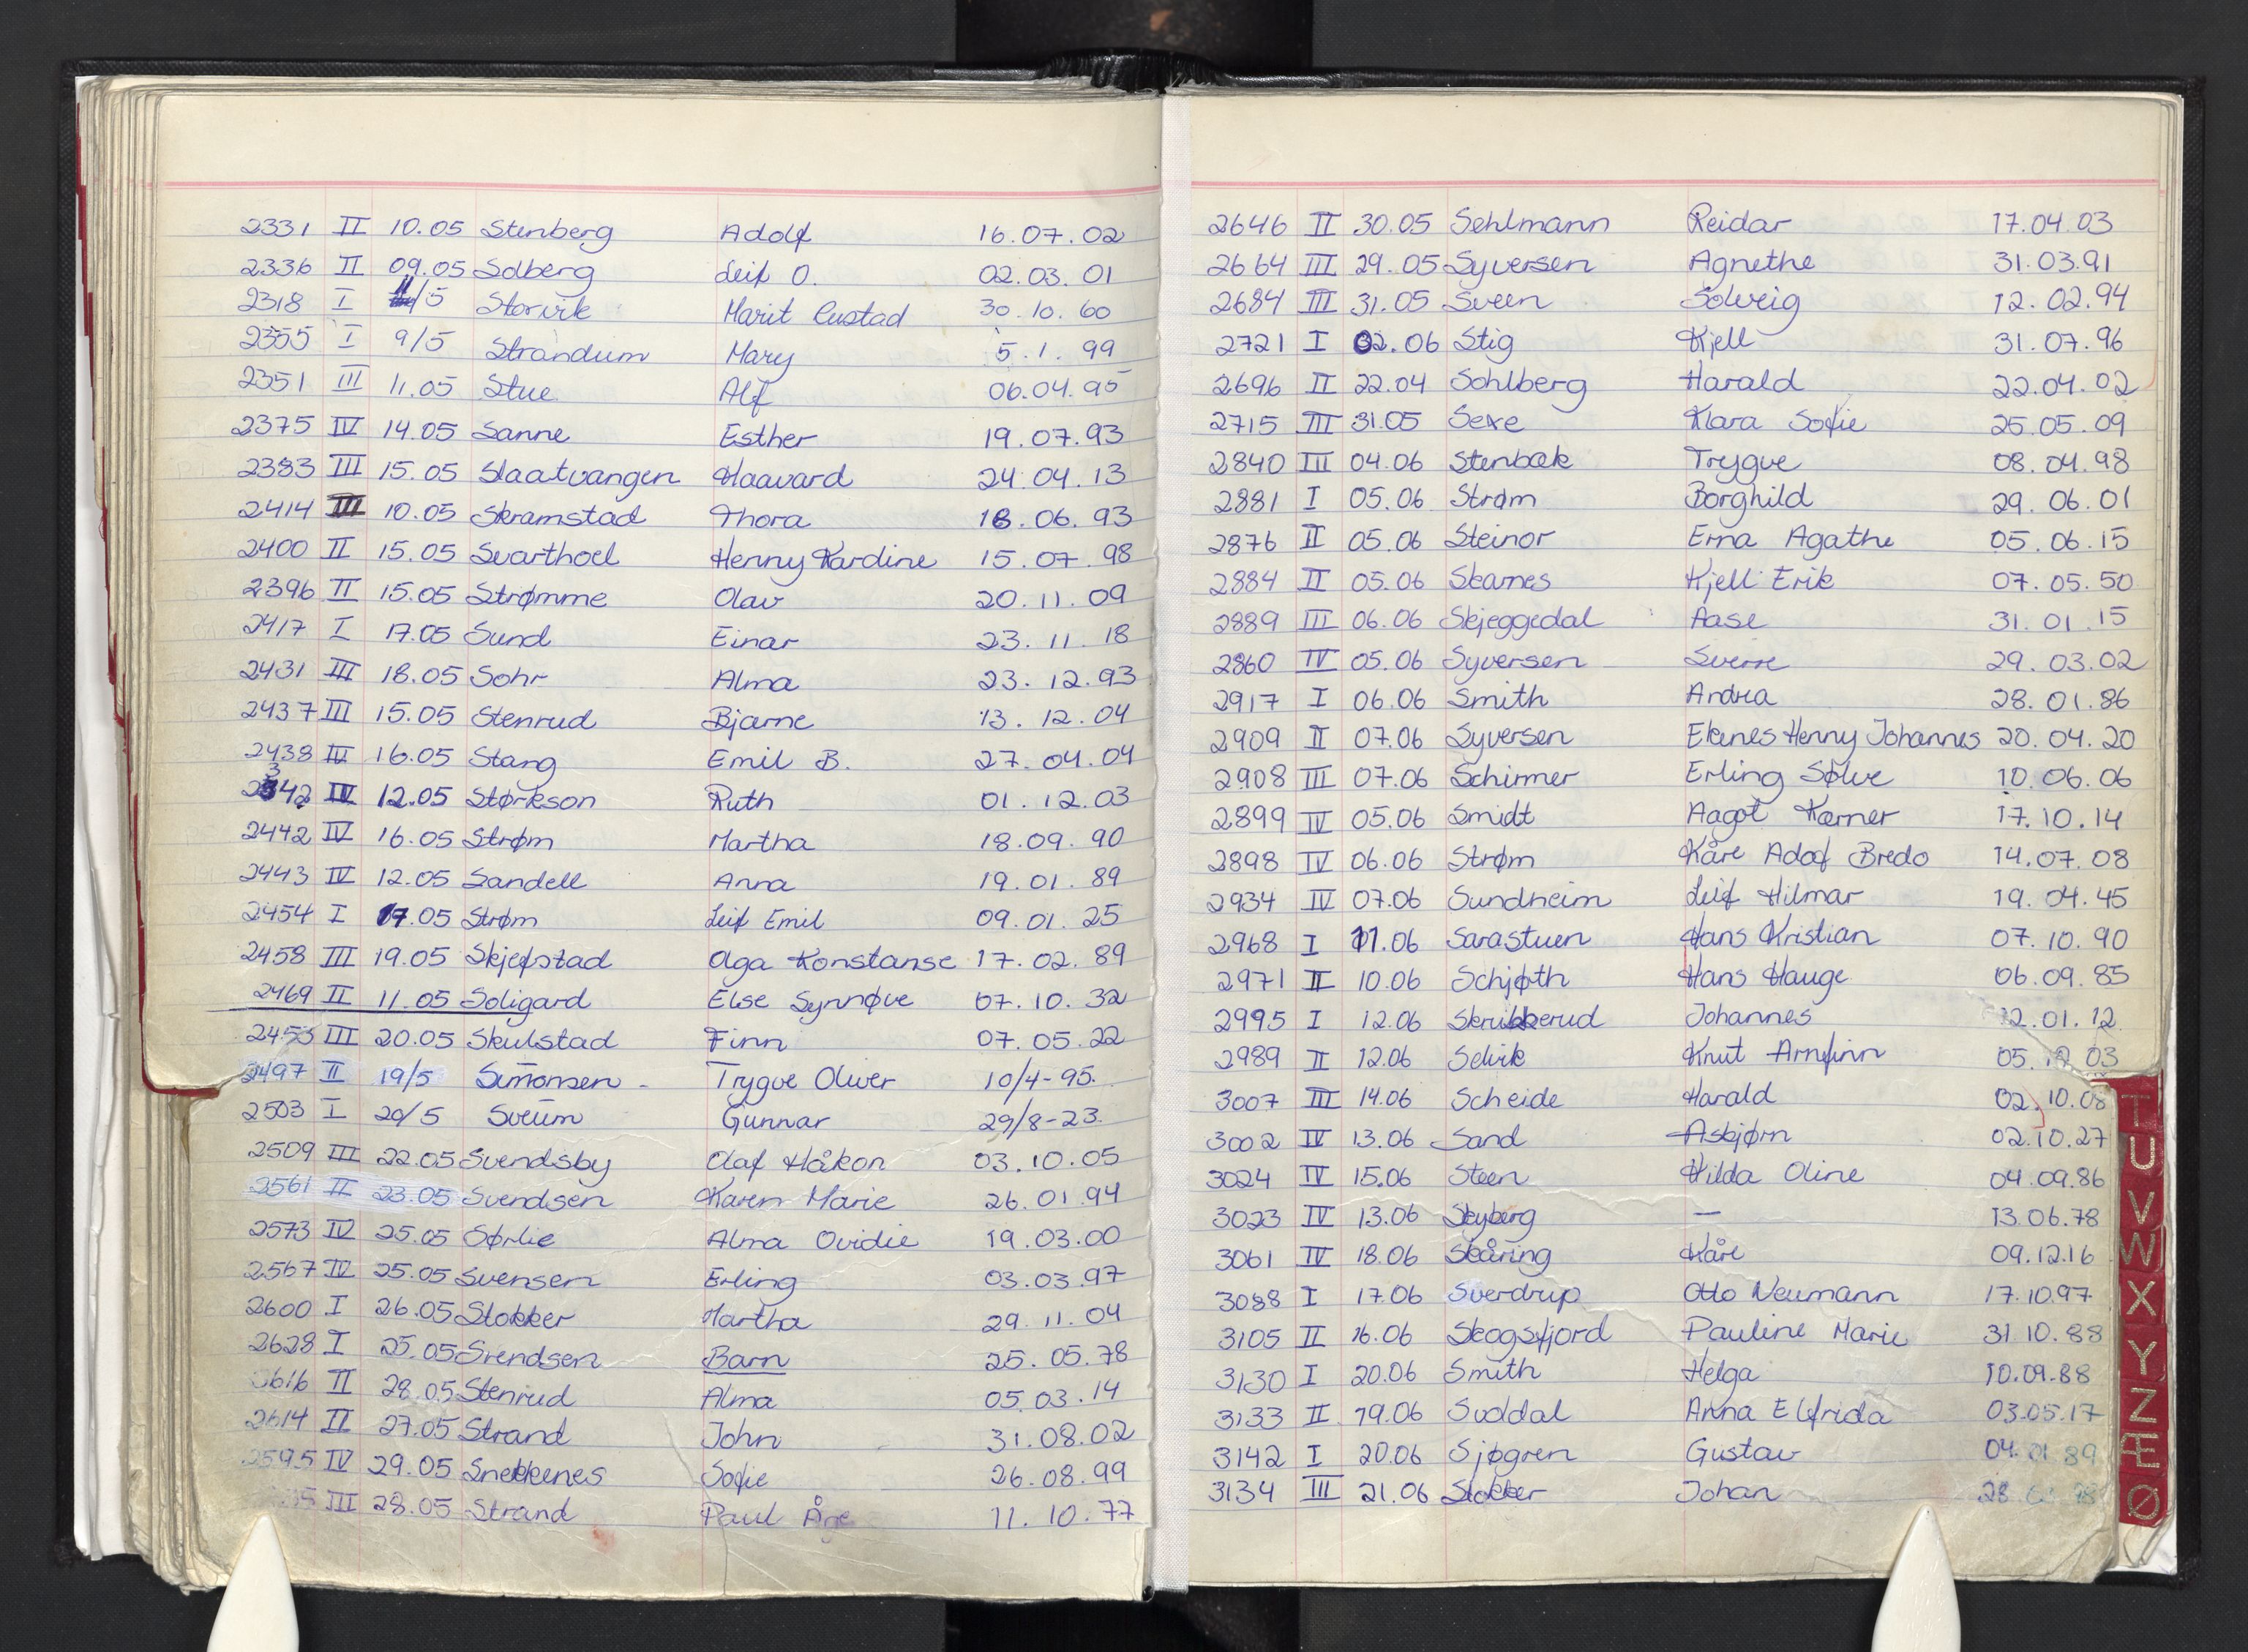 2331 II 10.05 Stenberg Adolf 16.07.02
2336 II 09.05 Solberg Leif O. 02.03.01
2318 I /5 Storvik Marit Custad 30.10.60
2355 I 9/5 Strandum Mary 5.1.99
2351 III 11.05 Stue Alf 06.04.95
2375 IV 14.05 Sanne Esther 19.07.93
2383 III 15.05 Slaatvangen Haavard 24.04.13
2414 III 10.05 Skramstad Thora 18.06.93
2400 II 15.05 Svarthoel Henny Kardine 15.07.98
2396 II 15.05 Strømme Olav 20.11.09
2417 I 17.05 Sund Einar 23.11.18
2431 III 18.05 Sohr Alma 23.12.93
2437 III 15.05 Stenrud Bjarne 13.12.04
2438 III 16.05 Stang Emil B. 27.04.04
2342 IV 12.05 Størkson Ruth 01.12.03
2442 IV 16.05 Strøm Martha 18.09.90
2443 IV 12.05 Sandell Anna 19.01.89
2454 I 17.05 Strøm Leif Emil 09.01.25
2458 III 19.05 Skjefstad Olga Konstanse 17.02.89
2469 II 11.05 Soligard Else Synnøve 07.10.32
2453 III 20.05 Skulstad Finn 07.05.22
2497 II 19/5 Simonsen - Trygve Oliver 10/4-95.
2503 I 20/5 Sveum Gunnar 29/8-23.
2509 III 22.05 Svendsby Olaf Håkon 03.10.05
2561 II 23.05 Svendsen Karen Marie 26.01.94
2573 IV 25.05 Sørlie Alma Ovidie 19.03.00
2567 IV 25.05 Svensen Erling 03.03.97
2600 I 26.05 Slokker Martha 29.11.04
2628 I 25.05 Svendsen Barn 25.05.78
2616 II 28.05 Stenrud Alma 05.03.14
2614 II 27.05 Strand John 31.08.02
2595 IV 29.05 Snekkenes Sofie 26.08.99
III 28.05 Strand Paul Åge 11.10.77
2646 II 30.05 Sehlmann Reidar 17.04.03
2664 III 29.05 Syversen Agnethe 31.03.91
2684 III 31.05 Sveen Solveig 12.02.94
2721 I 02.06 Stig Kjell 31.07.96
2696 II 22.04 Sohlberg Harald 22.04.02
2715 III 31.05 Sexe Klara Sofie 25.05.09
2840 III 04.06 Stenbæk Trygve 08.04.98
2881 I 05.06 Strøm Borghild 29.06.01
2876 II 05.06 Steinor Erna Agathe 05.06.15
2884 II 05.06 Skarnes Kjell Erik 07.05.50
2889 III 06.06 Skjeggedal Aase 31.01.15
2860 IV 05.06 Syversen Sverre 29.03.02
2917 I 06.06 Smith Andrea 28.01.86
2909 II 07.06 Syversen Ekenes Henny Johannes 20.04.20
2908 III 07.06 Schirmer Erling Sølve 10.06.06
2899 IV 05.06 Smidt Aagot Kærner 17.10.14
2898 IV 06.06 Strøm Kåre Adof Bredo 14.07.08
2934 IV 07.06 Sundheim Leif Hilmar 19.04.45
2968 I 11.06 Sarastuen Hans Kristian 07.10.90
2971 II 10.06 Schjøth Hans Hauge 06.09.85
2995 I 12.06 Skrubberud Johannes 12.01.12
2989 II 12.06 Selvik Knut Arnfinn 05.12.03
3007 III 14.06 Scheide Harald 02.10.08
3002 IV 13.06 Sand Asbjørn 02.10.27
3024 IV 15.06 Steen Hilda Oline 04.09.86
3023 IV 13.06 Skyberg — 13.06.78
3061 IV 18.06 Skåring Kåre 09.12.16
3088 I 17.06 Sverdrup Otto Neumann 17.10.97
3105 II 16.06 Skogsfjord Pauline Marie 31.10.88
3130 I 20.06 Smith Helga 10.09.88
3133 II 19.06 Suddal Anna Elfrida 03.05.17
3142 I 20.06 Sjøgren Gustav 04.01.89
3134 III 21.06 Slokker Johan 28.
T
U
V
W
X
Y
Z
Æ
Ø